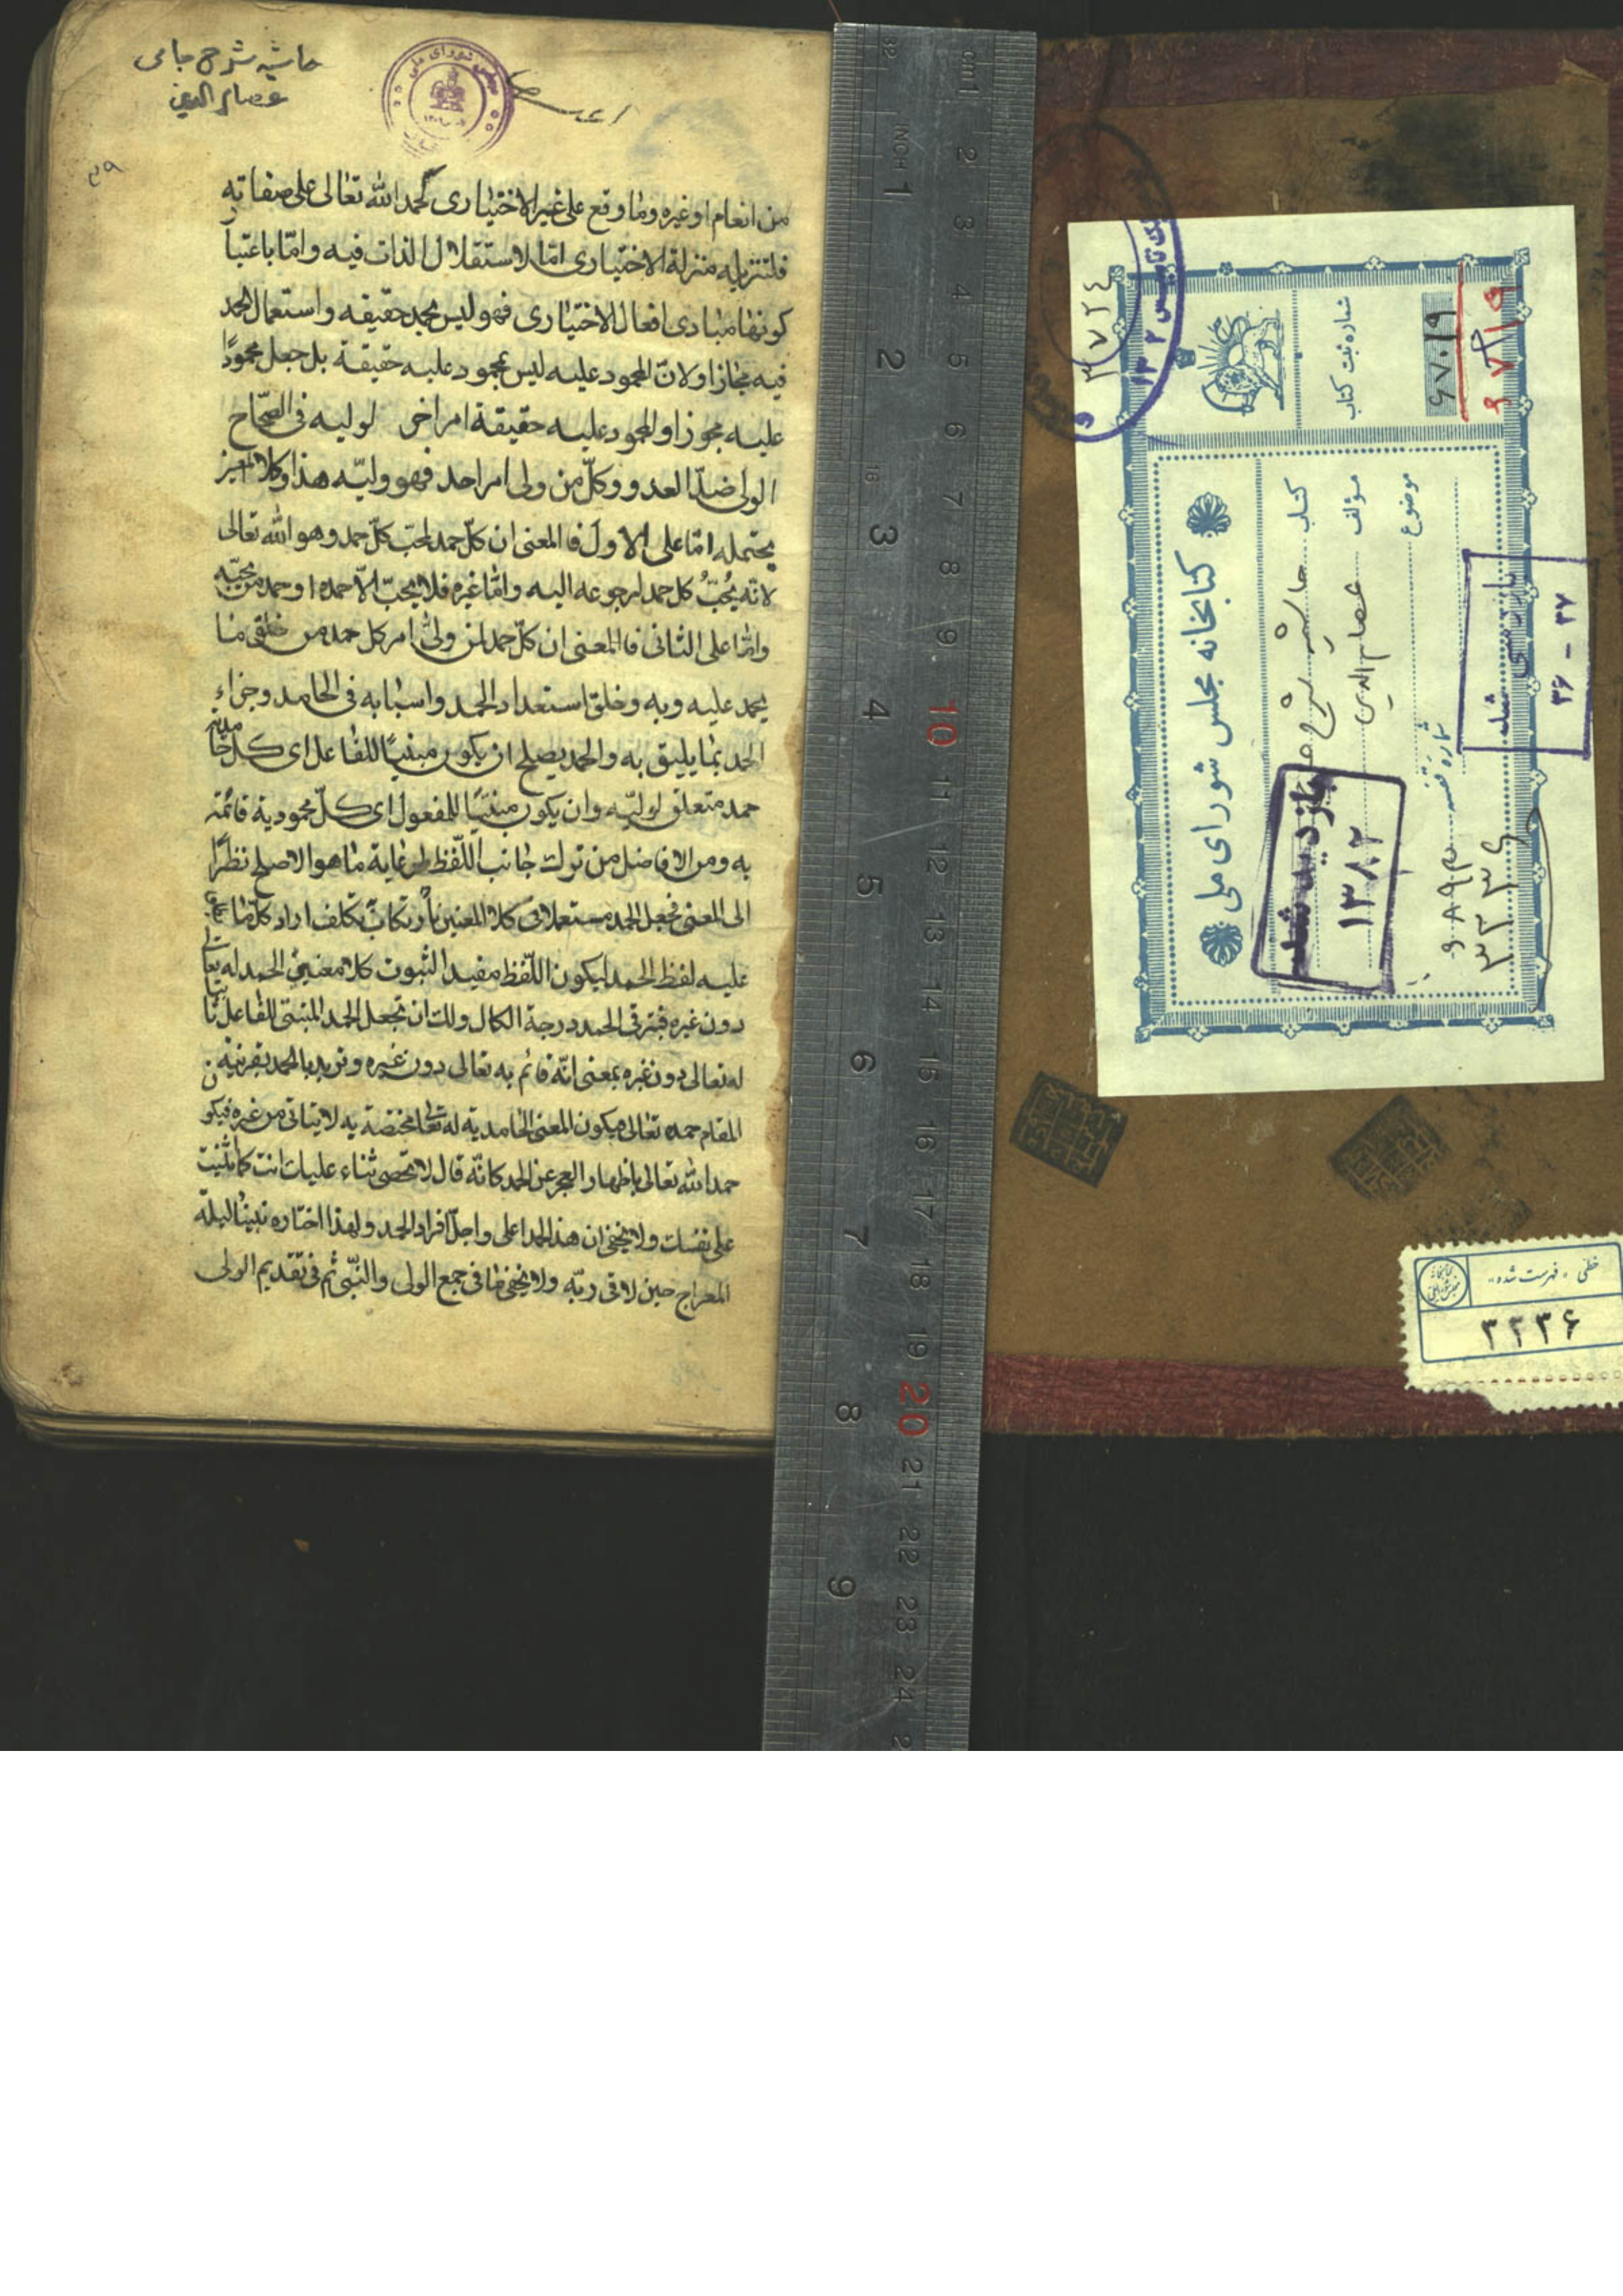 حاشیه شرح جامی
عصام الدین
۳۹
من انعام اوغيره وما وقع على غير الاختيارى كحمد الله تعالى على صفاته
فلتنزيله منزلة الاختيارى امّا لاستقلال الذات فيه وامّا باعتبار
كونها مبادى افعال الاختيارى فهو ليس بحمد حقيقه واستعمال الحمد
فيه مجازا ولانّ المحمود عليه ليس بمحمود عليه حقيقة بل جعل محمودًا
عليه مجوزا والمحمود عليه حقيقة امر اخر لوليه فى الصّحاح
الولى ضدّ العدو وكلّ من ولى امر احد فهو وليّه هذا وكلا
يحتمله امّا على الاول فالمعنى ان كلّ حمد لمحب كلّ حمد وهو الله تعالى
لانّه يُحبُّ كل حمد لرجوعه اليه وامّا غيره فلا يحبّ الّا حمده او حمد من يحبّه
وامّا على الثانى فالمعنى ان كلّ حمد لمن ولى امر كل حمد من خلق ما
يحمد عليه وبه وخلق استعداد الحمد واسبابه فى الحامد وجزاء
الحمد بما يليق به والحمد يصلح ان يكون مبنيًا للفاعل اى كل حامدية
حمد متعلق لوليّه وان يكون مبنيًا للمفعول اى كلّ محمودية قائمة
به ومن الافاضل من ترك جانب اللّفظ لرعاية ما هو الاصلح نظرًا
الى المعنى فجعل الحمد مستعملا فى كلا المعنيين بارتكاب تكلف اراد كلّ ما
عليه لفظ الحمد ليكون اللّفظ مفيد الثبوت كلا معنيى الحمد له تعالى
دون غيره فيترقى الحمد درجة الكمال ولك ان تجعل الحمد المبنى للفاعل ثابتا
له تعالى دون غيره بمعنى انّه قائم به تعالى دون غيره وتريد بالحمد بقرينة
المقام حمده تعالى فيكون المعنى الحامدية له تعالى مختصة به لا يتاتى من غيره فيكون
حمد الله تعالى باظهار العجز عن الحمد كانّه قال لا نحصى ثناء عليك انت كما اثنيت
على نفسك ولا يخفى ان هذا الحمد اعلى واجلّ افراد الحمد ولهذا اختاره نبينا ليلة
المعراج حين لاقى ربّه ولا يخفى ما فى جمع الولى والنّبى ثم فى تقديم الولى
کتابخانه مجلس شورای ملی
کتاب حاشیه شرح
مؤلف عصام الدین
موضوع
شماره قفسه
۳۲۳۶
شماره ثبت کتاب
۶۷۰۱۹
۳۷۲٤
بازدید شد
۱۳۸۲
بازرسی شد
۳۶ - ۳۷
خطی «فهرست شده»
۳۲۳۶
cm 1 2 3 4 5 6 7 8 9 10 11 12 13 14 15 16 17 18 19 20 21 22 23 24
32 INCH 1 2 3 4 5 6 7 8 9
16